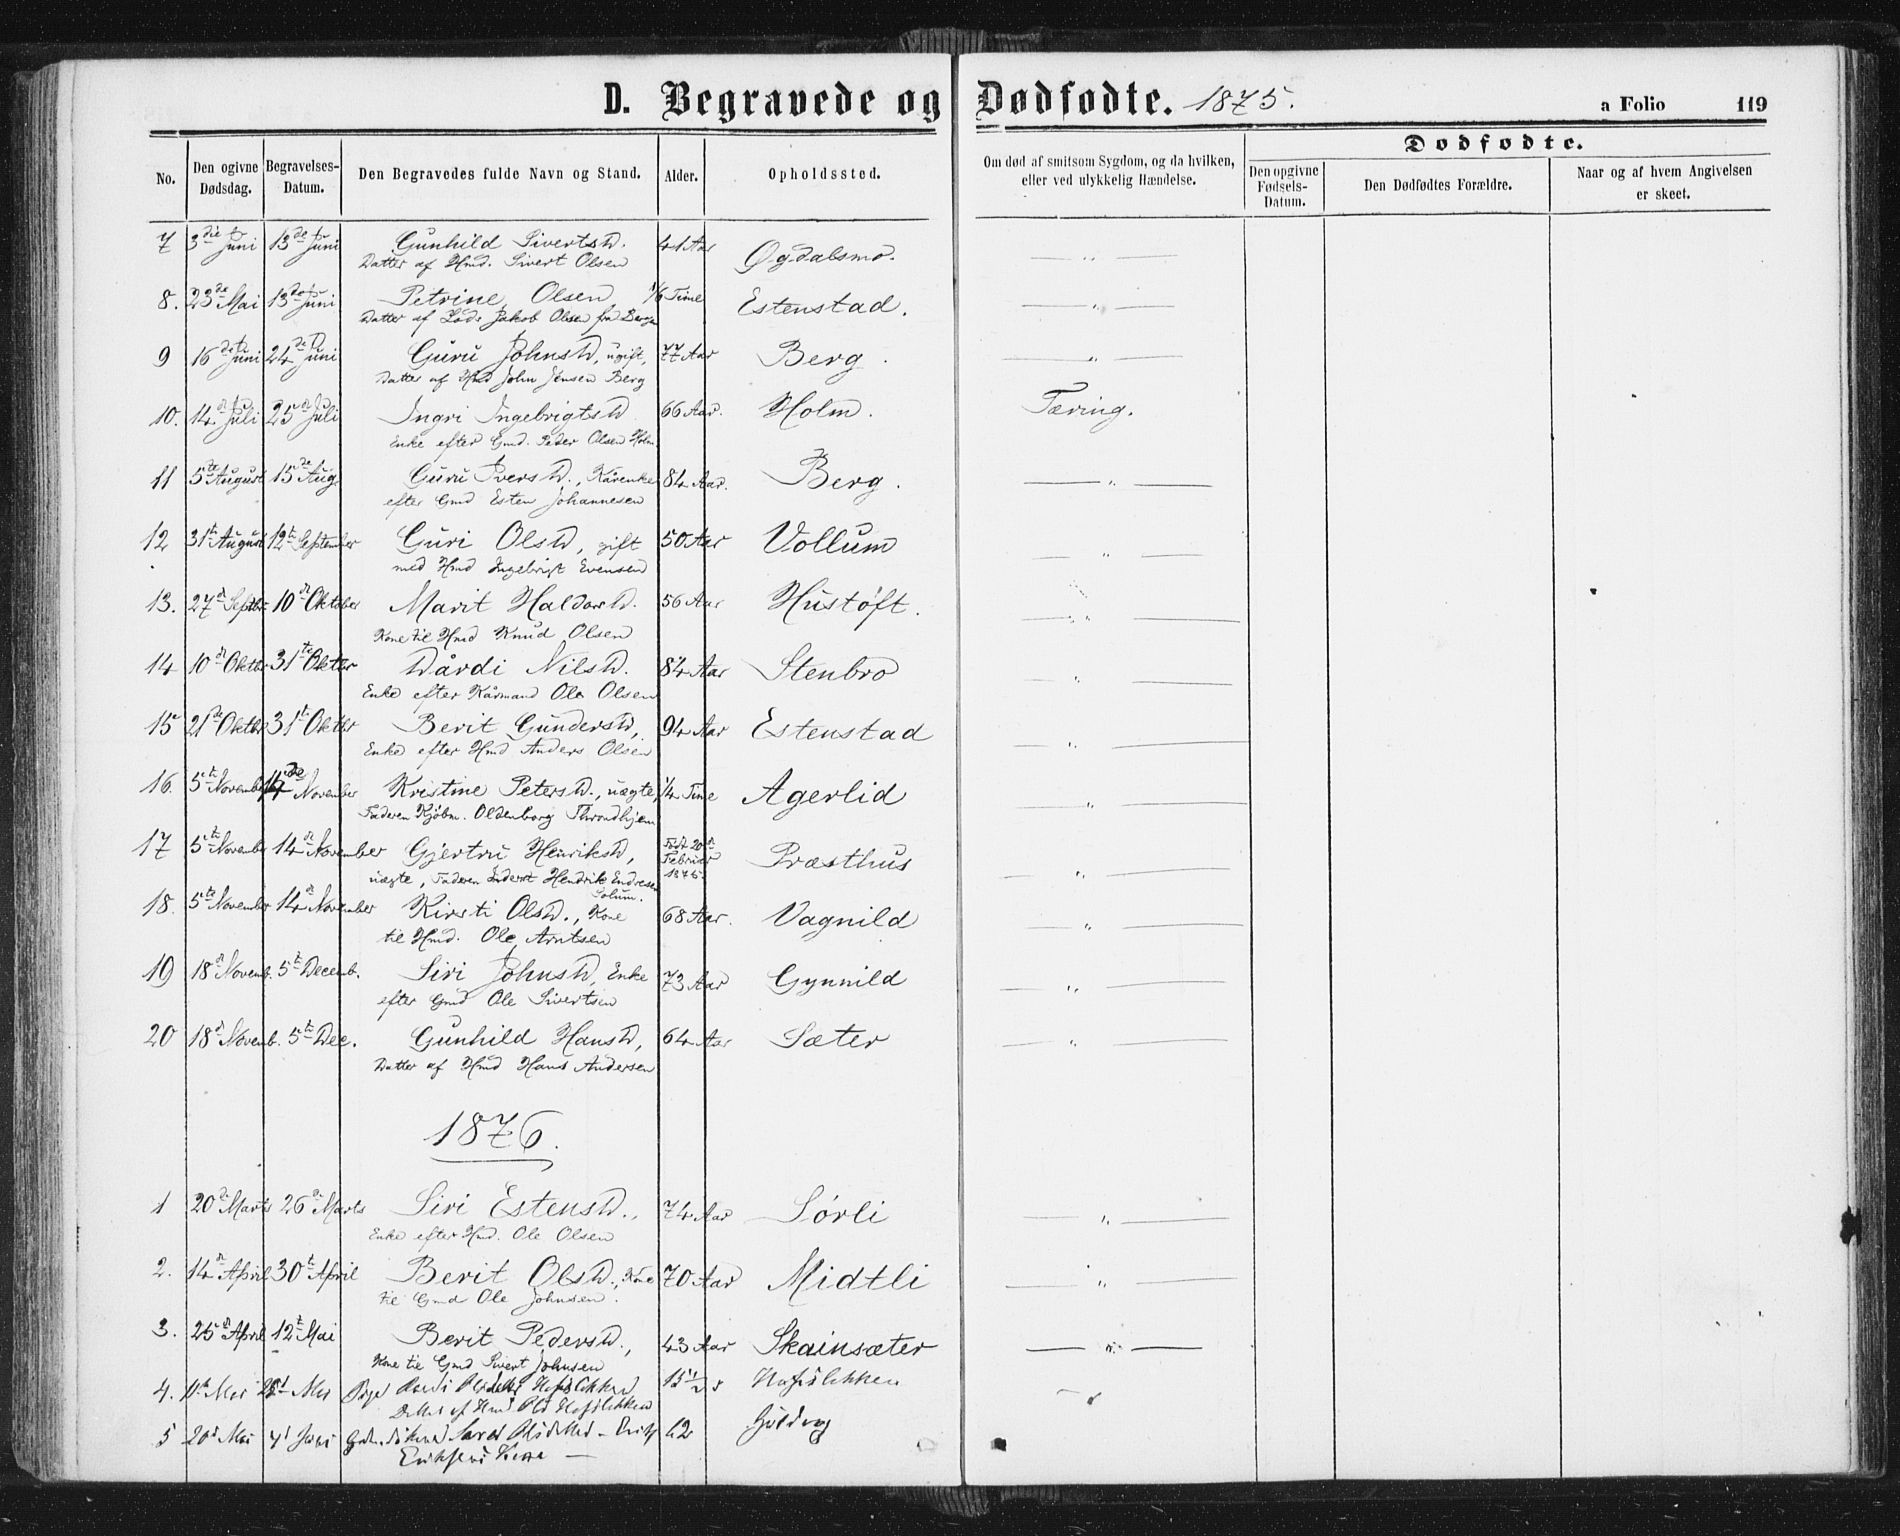 D. Begravede og Dødfødte. 1875. a Folio 119
Dødfødte.
No. Den ogivne Dødsdag. Begravelses-Datum. Den Begravedes fulde Navn og Stand. Alder. Opholdssted. Om død af smitsom Sygdom, og da hvilken, eller ved ulykkelig Hændelse. Den opgivne Fødsels-Datum. Den Dødfødtes Forældre. Naar og af hvem Angivelsen er skeet.
7 3die Juni 13de Juni Gunhild Sivertsd. 41 Aar Øgdalsmo. — " —
Datter af Hmd. Sivert Olsen
8. 23de Mai 13de Juni Petrine Olsen 1/6 Time Estenstad. — " —
Datter af Lods Jakob Olsen fra Bergen
9 16de Juni 24de Juni Guru Johnsd, ugift, 77 Aar Berg. — " —
Datter af Hmd John Jensen Berg
10. 14d Juli 25d Juli Ingri Ingebrigtsd 66 Aar. Holm. Tæring.
Enke efter Gmd. Peder Olsen Holm
11 5te August 15de Aug. Guru Iversd., Kårenke 84 Aar. Berg. — " —
efter Gmd Esten Johannesen
12 31t August 12t September Guri Olsd, gift 50 Aar Vollum — " —
med Hmd Ingebrigt Evensen
13. 27d Septbr 10d Oktober Marit Haldorsd. 56 Aar Hustøft. — " —
Kone til Hmd Knud Olsen
14 10d Oktbr 31te Oktbr Dårdi Nilsd. 84 Aar Stenbro — " —
Enke efter Kårmand Ole Olsen
15 21de Oktbr 31t Oktbr Berit Gundersd, 94 Aar Estenstad — " —
Enke efter Hmd Anders Olsen
16. 5t November 14de November Kristine Petersd., uægte, 1/4 Time Agerlid — " —
Faderen Kjøbm. Oldenborg Throndhjem
17 5te November 14d November Gjertru Henriksd, Født 20d Februar 1875. Præsthus — " —
uægte, Faderen Inderst Hendrik Endresen Solum.
18. 5te November 14d November Kirsti Olsd., Kone 68 Aar. Vagnild — " —
til Hmd. Ole Arntsen
19 18d Novemb. 5t Decemb. Siri Johnsd, Enke 73 Aar Gynnild — " —
efter Gmd Ole Sivertsen
20 18d Novemb. 5te Dec. Gunhild Hansd, 64 Aar Sæter — " —
Datter af Hmd Hans Andersen
1876.
1 20de Marts 26de Marts Siri Estensd., 74 Aar Sørli — " —
Enke efter Hmd. Ole Olsen
2. 14d April 30t April Berit Olsd., Kone 70 Aar Midtli — " —
til Gmd Ole Johnsen.
3. 25d April 12t Mai Berit Pedersd., 43 Aar Skainsæter — " —
Kone til Gmd Sivert Johnsen
4. Mai Mai Pige 15 1/2
Datter af Hmd
5 20d Mai Olsdatter 62
Eriksens Kone —